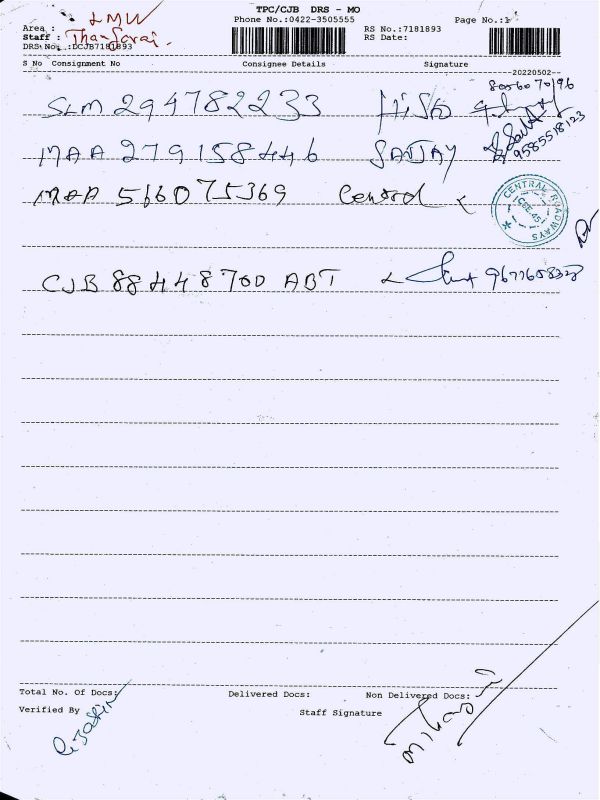 TPC/CJB DRS - MO
Phone No.:0422-3505555
Page No.:1
Area : LMW
Staff :
DRS No. :DCJB7181893
RS No.:7181893
RS Date:
S No Consignment No Consignee Details Signature
--20220502--
8056070196
SLM 294782233
MAA 279158446 SANJAY 9585518123
MAA 566075369 Central
CENTRAL ROADWAYS
CBE-45
CJB 88448700 ABT 9677658328
Total No. Of Docs: Delivered Docs: Non Delivered Docs:
Verified By
Staff Signature